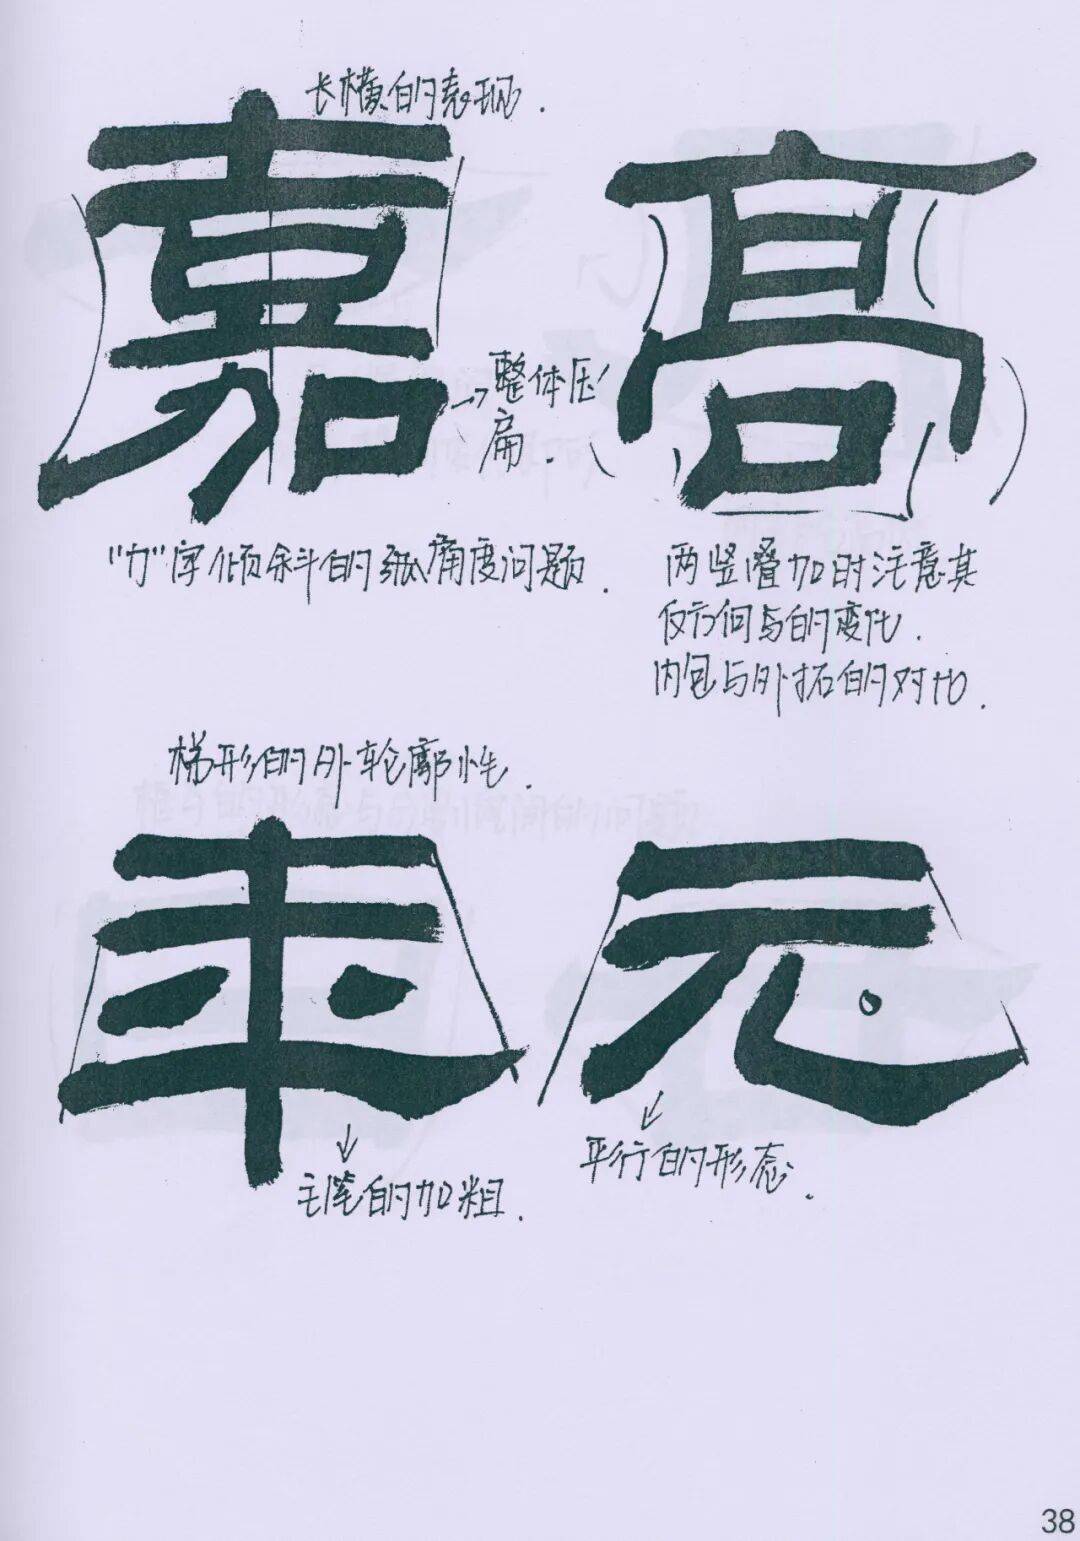 长横的表现.
嘉
高
整体压
扁.
"力"字倾斜的角度问题.
两竖叠加时注意其
仪方向与的变化.
内包与外拓的对比.
梯形的外轮廓性.
年
元
主笔的加粗.
平行的形态.
38